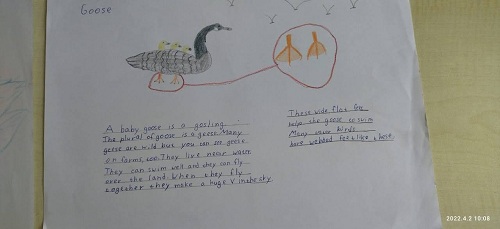 Goose
A baby goose is a gosling
The plural of goose is a geese. Many
geese are wild but you can see geese
on farms, too. They live near water.
They can swim well and they can fly
over the land. When they fly
together they make a huge V in the sky.
These wide, flat
help the goose to swim
Many water birds
have webbed feet like these.
2022.4.2 10:08